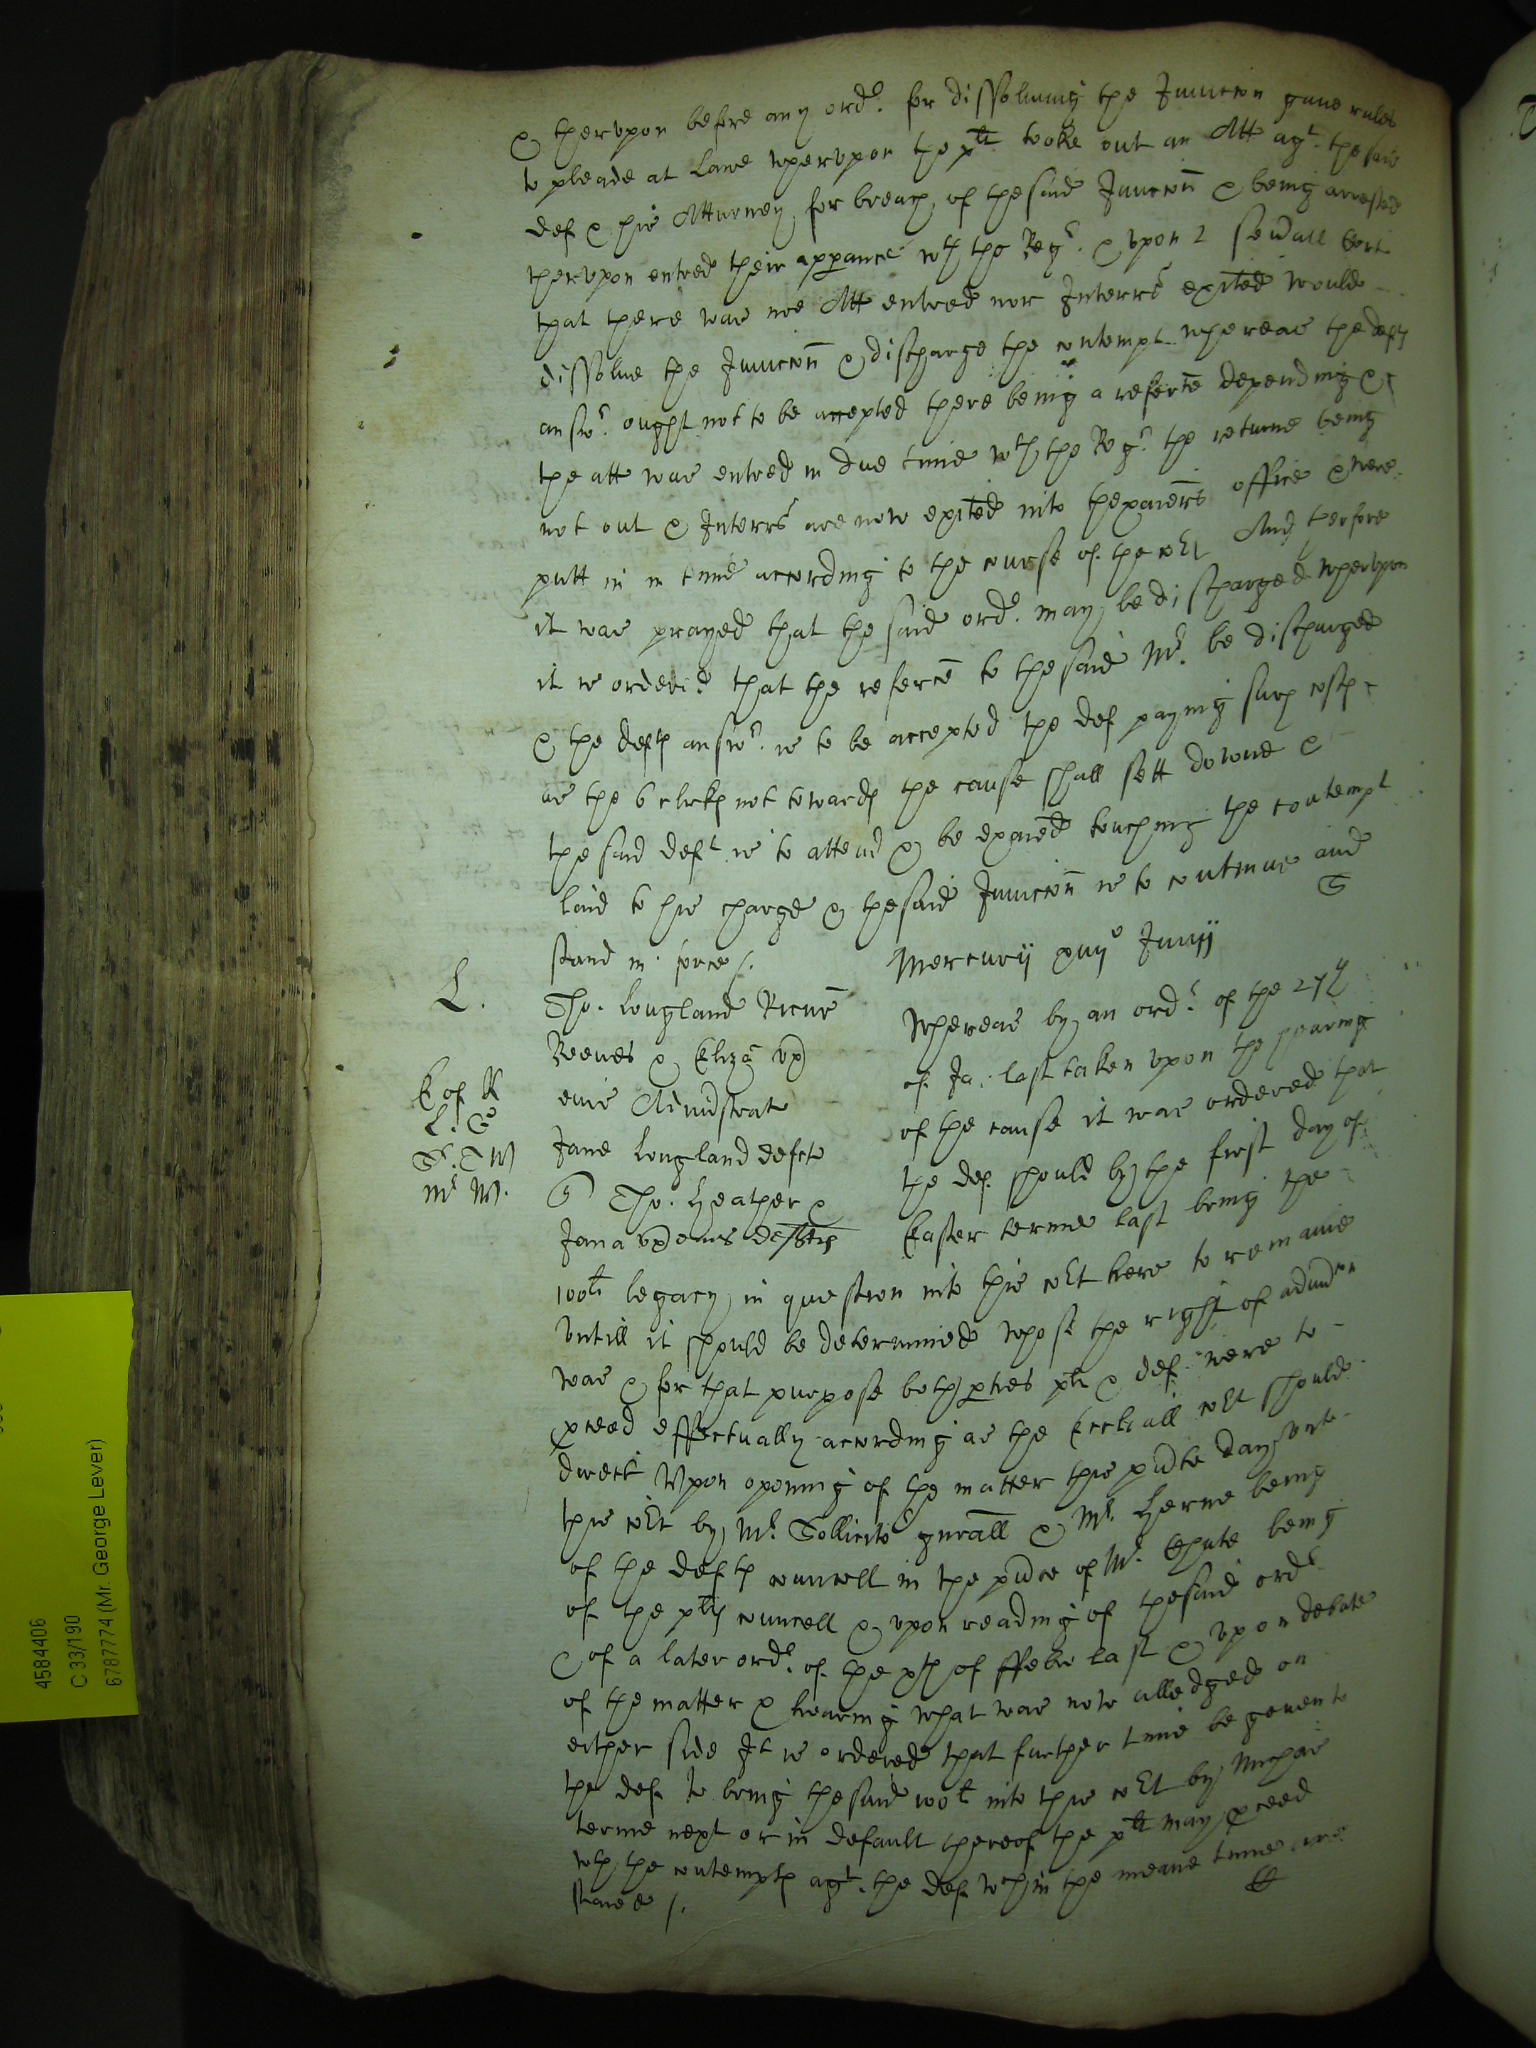 & thervpon before any ordr. for dissolving the Iniuncon gave rules
to pleade at Lawe wherevpon the plt tooke out an Att agt. the said
def & his Atturney for breach of the said Iniuncon & being arrested
thervpon entred their apparance wth the Regr. & vpon 2 seuall Certs
that there was noe Att entred nor Interrs exited would
dissolve the Iniuncon & discharge the contempt whereas the defts
answr. ought not to be accepted there being a refference depending &
the att was entred in due time wth the Regr. the returne being
not out & Interrs are now exited into thexaiers office & were
putt in in time according to the course of the cort And therfore
it was prayed that the said ordr. may be discharged whervpon
it is ordered that the refernce to the said Mr. be discharged
& the defts answr. is to be accepted the def paying such costs
as the 6 clerks not towards the cause shall sett downe &
the said deft is to attend & be exaied touching the contempt
laid to his charge & the said Iniuncon is to continue and
stand in force /.
Mercurij xiijo Iunij
L.
Tho. Longland Ricus
Reeves & Eliza vx
eius Administrat
Jane Longland defcte
Tho. Heather &
Jana vx eius deftes
E of K
L. G
S. T W
Mr W.
Whereas by an ordr. of the 27th
of Ja: last taken vpon the hearing
of the cause it was ordered that
the def. should by the first day of
Easter terme last bring the
100li legacy in question into this cort here to remaine
vntill it should be determined whose the right of admcon
was & for that purpose both pties plt & def. were to
pceed effectually according as the Ecclicall cort should
direct Vpon opening of the matter this psdte day vnto
this cort by Mr. Sollicitor gnrall & Mr. Herne being
of the defts councell in the psdce of Mr. Chute being
of the plts councell & vpon reading of the said ordr.
& of a later ordr. of the xth of ffebr last & vpon debate
of the matter & hearing what was now alledged on
either side It is ordered that further time be geuen to
the def. to bring the said 100li into this cort by Michas
terme next or in default thereof the plt may pceed
wth the contempts agt. the def. wch in the meane time are
staied /.
4584406
C 33/190
6787774 (Mr. George Lever)